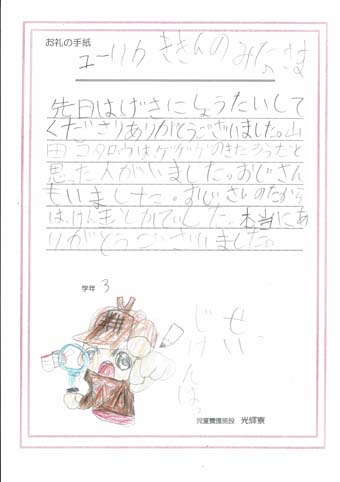 お礼の手紙
ユーリカ ききんの みなさま
先日はげきにしょうたいして
くださりありがとうございました。山
田コタロウは、ゲゲゲのきたろうだと
思った人がいました。おじさん
もいました。おじさんのたから
は、けん玉としかていした。本当にあ
りがとうございました。
学年 3
児童養護施設 光輝寮